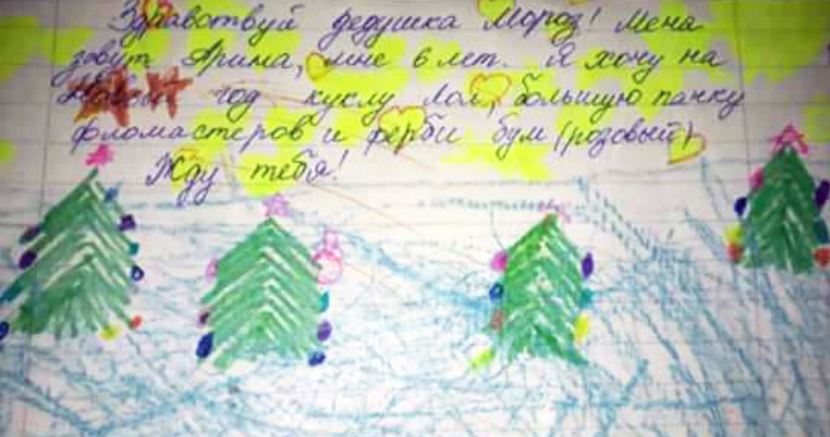 Здравствуй дедушка Мороз! Меня
зовут Арина, мне 6 лет. Я хочу на
Новый год куклу Лол, большую пачку
фломастеров и ферби бум (розовый)
Жду тебя!